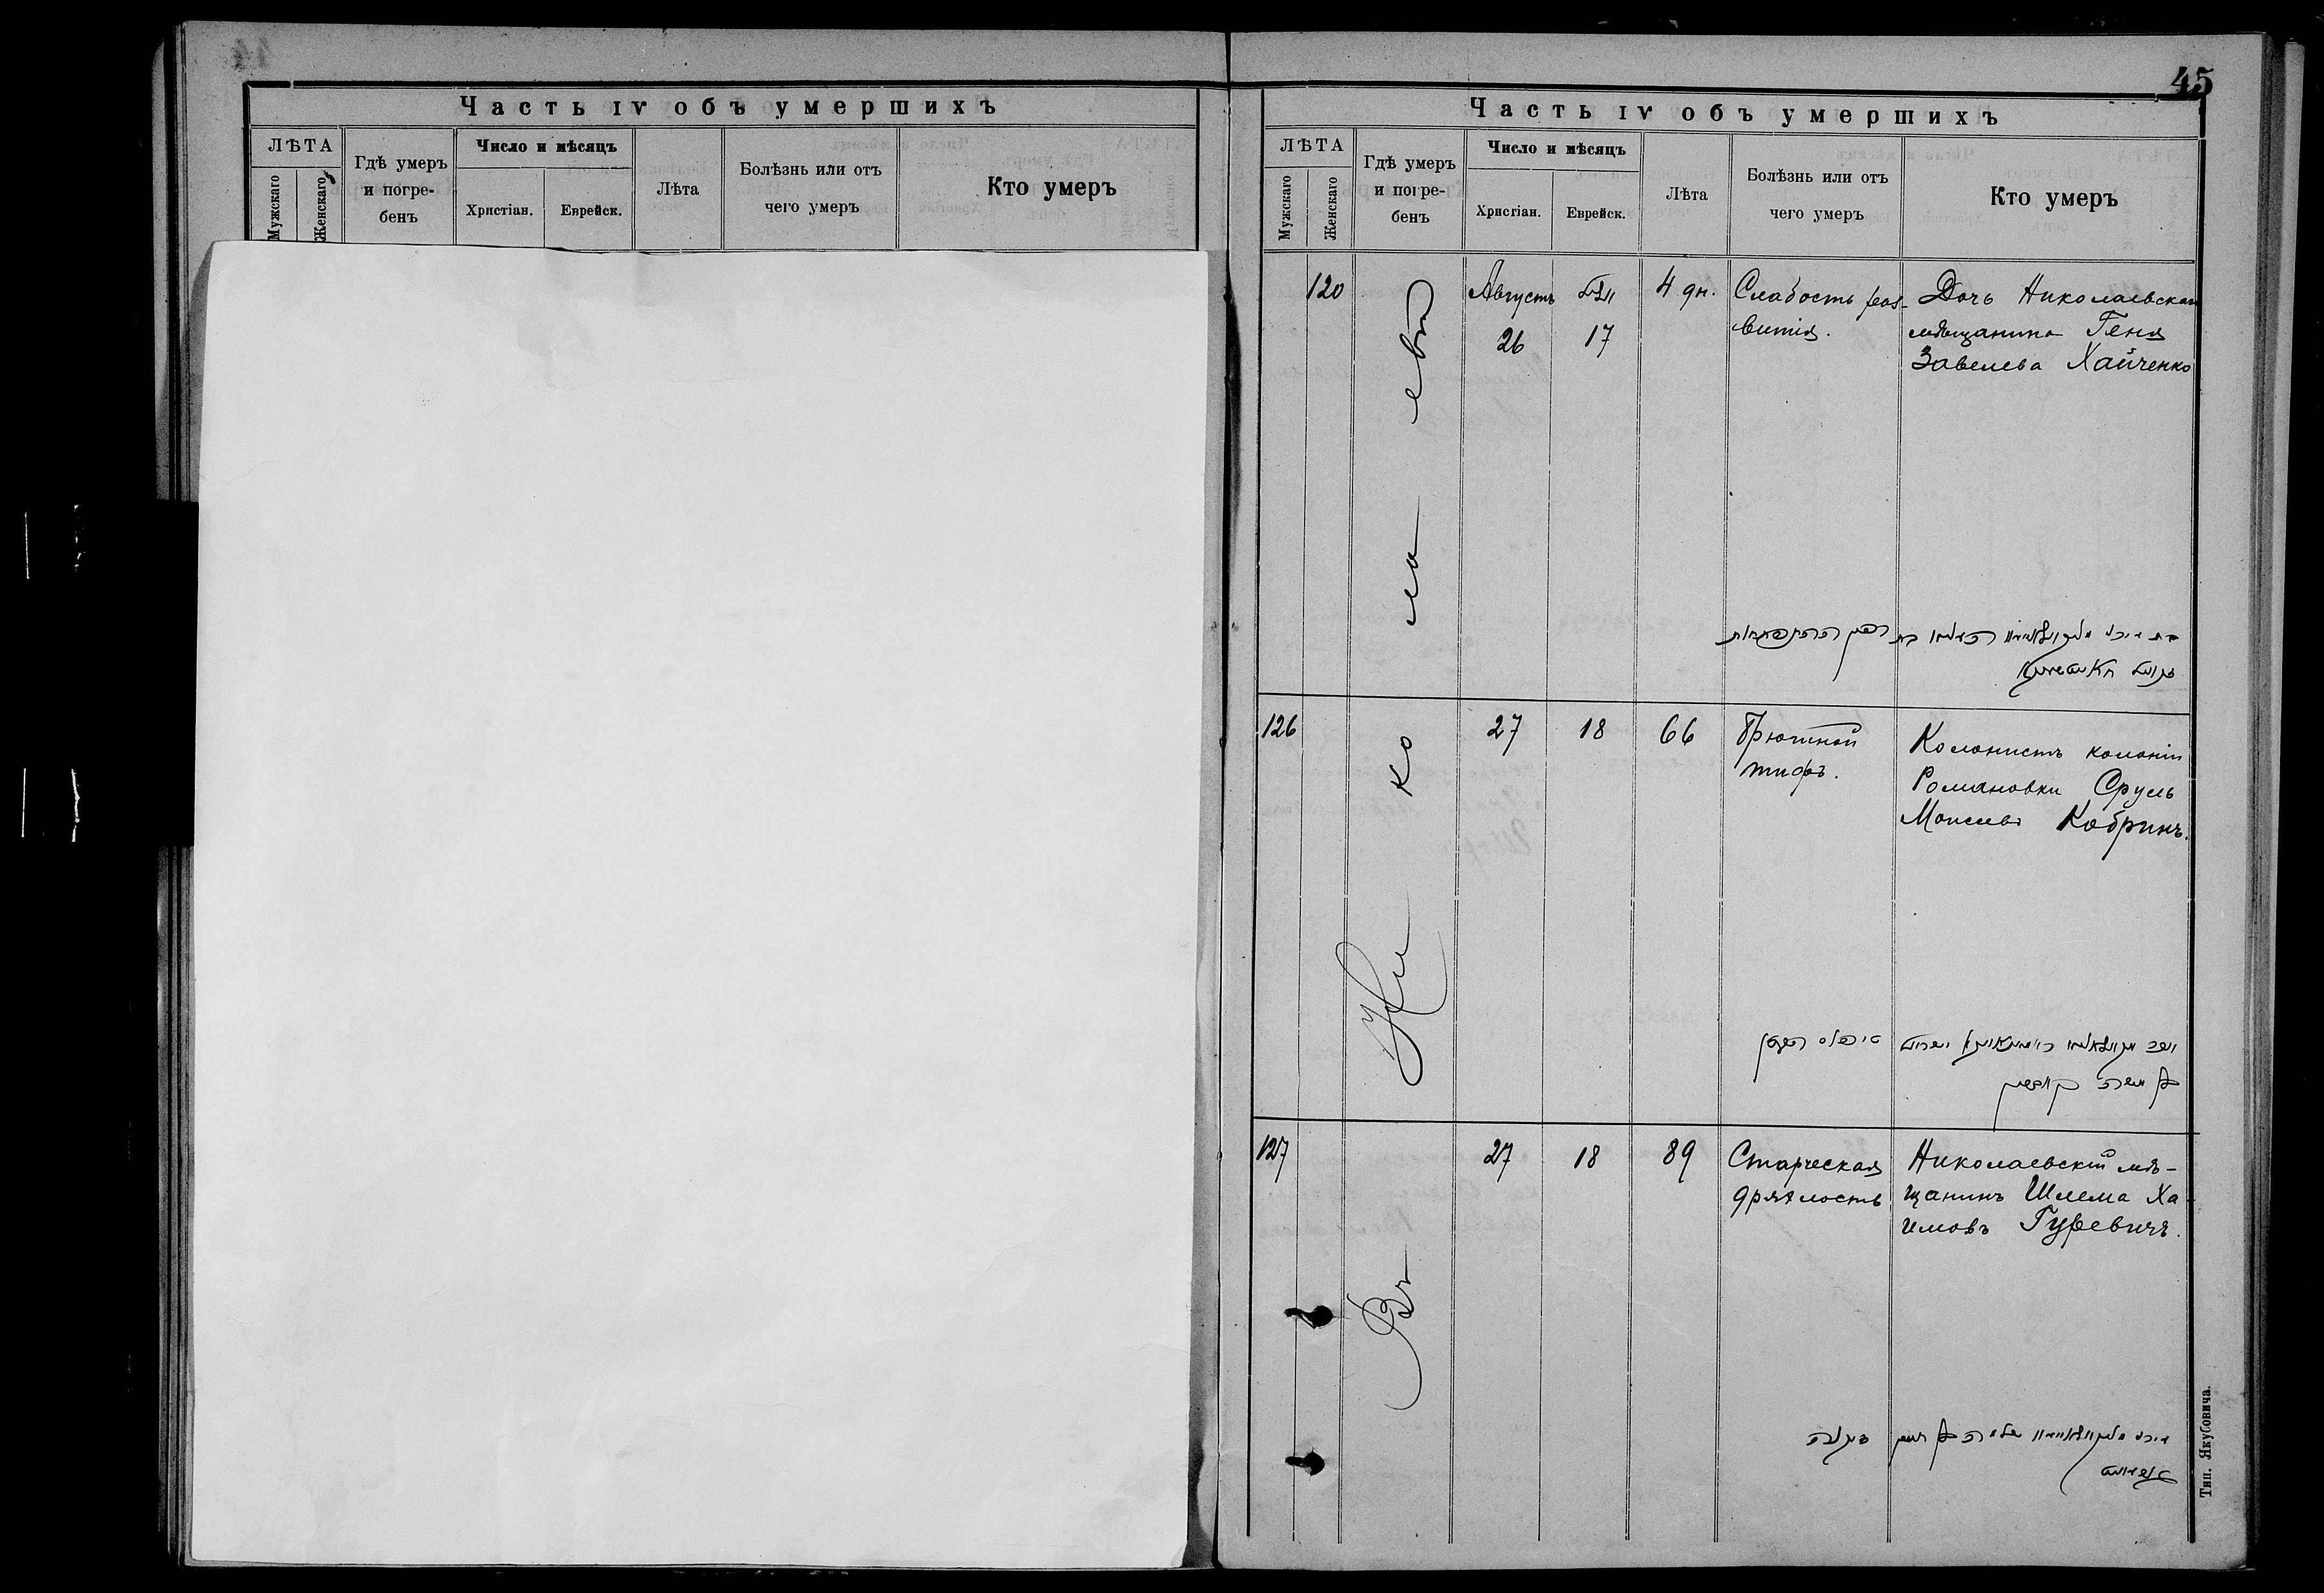 Часть IV объ умершихъ
ЛѢТА
Мужскаго
Женскаго
Гдѣ умеръ
и погре-
бенъ
Число и мѣсяцъ
Христіан.
Еврейск.
Лѣта
Болѣзнь или отъ
чего умеръ
Кто умеръ
45
Часть IV объ умершихъ
ЛѢТА
Мужскаго
Женскаго
Гдѣ умеръ
и погре-
бенъ
Число и мѣсяцъ
Христіан.
Еврейск.
Лѣта
Болѣзнь или отъ
чего умеръ
Кто умеръ
Въ Николаевѣ
120
Августъ
26
17
4 дн.
Слабость раз-
витія.
Дочь Николаевскаго
мѣщанина Геня
Завелева Хайченко
126
27
18
66
Брюшной
тифъ.
Колонистъ колоніи
Романовки Сруль
Моисеевъ Кобринъ.
127
27
18
89
Старческая
дряхлость
Николаевскій мѣ-
щанинъ Шлема Ха-
имовъ Гуревичъ.
Тип. Якубовича.